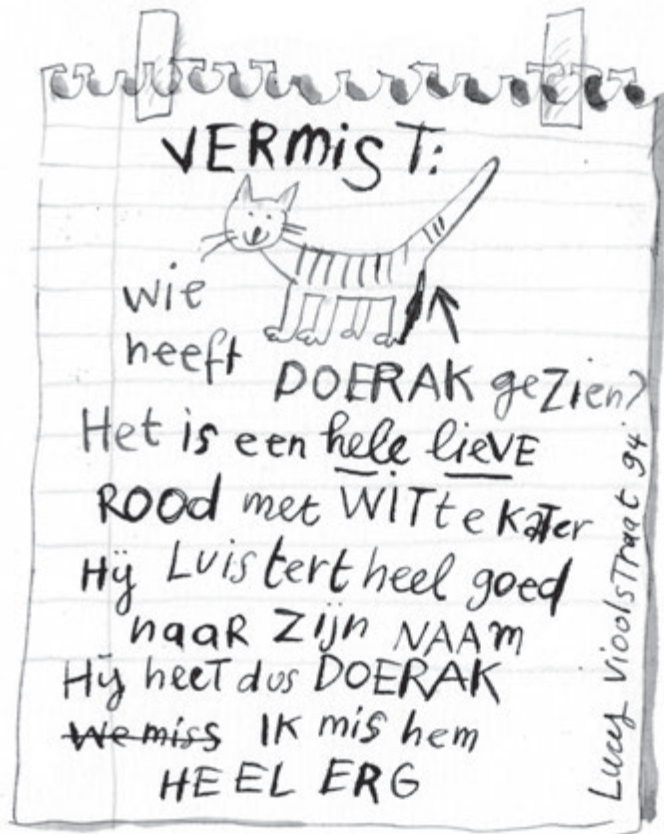 VERMIST:
wie
heeft
DOERAK gezien?
Het is een hele lieVE
ROOd met WITte KaTer
Hij Luistert heel goed
naaR Zijn NAAm
Hij heeT dus DOERAK
We miss IK mis hem
HEEL ERG
Lucy VioolsTraat 94